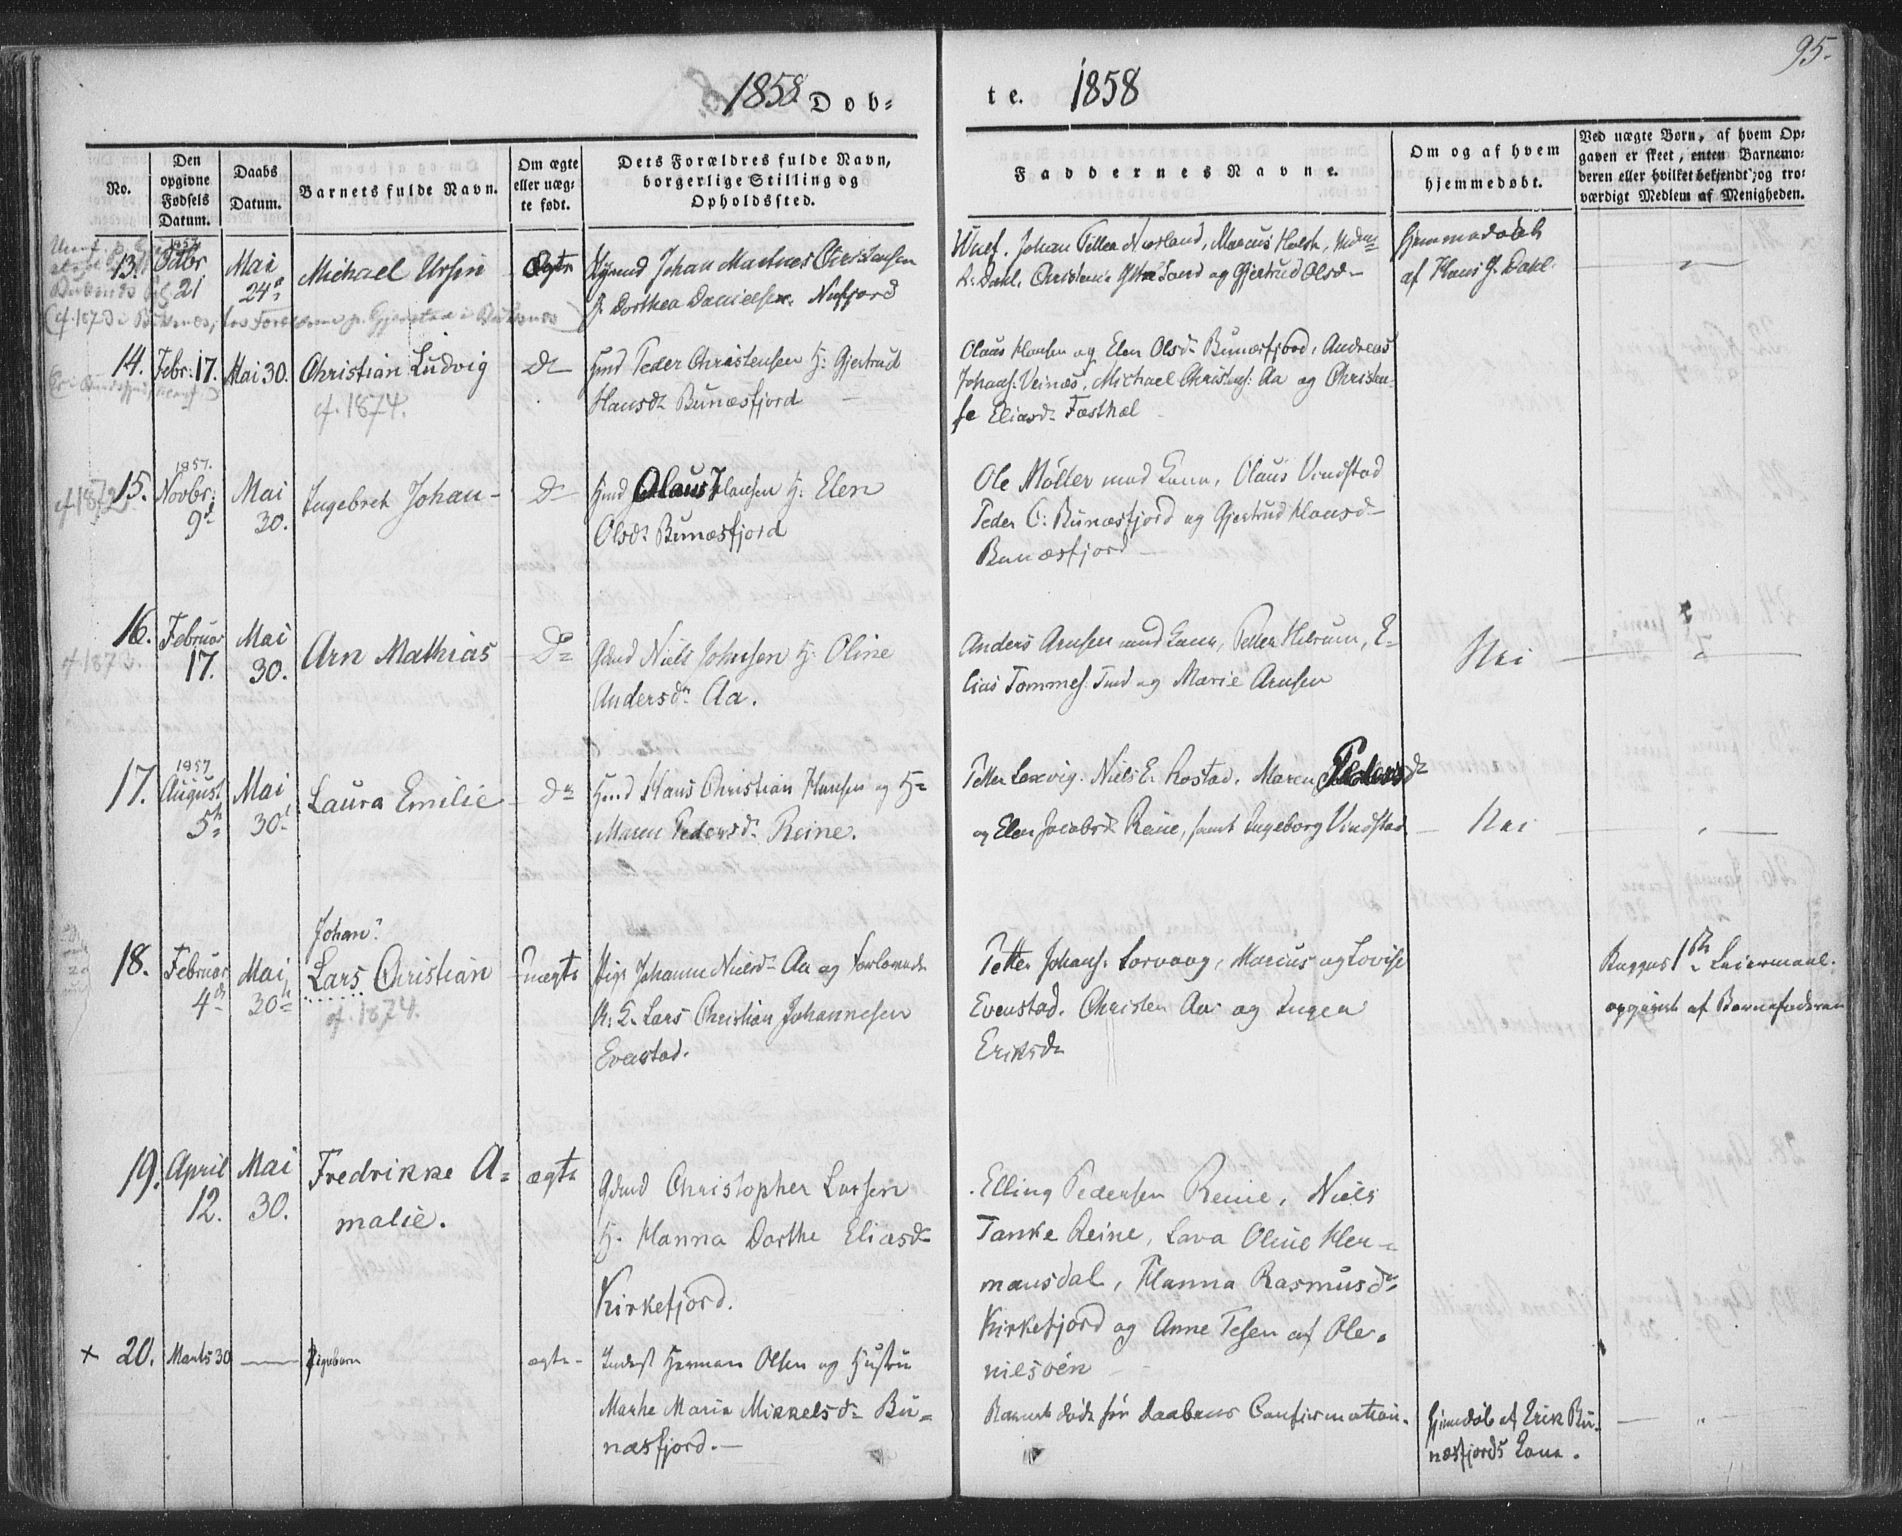 95.
1858 Dob-
te. 1858
No.
Den opgivne Fødsels Datum.
Daabs Datum.
Barnets fulde Navn.
Om ægte eller uæg- te født.
Dets Forældres fulde Navn, borgerlige Stilling og Opholdssted.
Faddernes Navne.
Om og af hvem hjemmedøbt.
Ved uægte Børn, af hvem Op-
gaven er skeet, enten Barnemo-
deren eller hvilket bekjendt og tro-
værdigt Medlem af Menigheden.
13. 1857 21 Mai 24 Michael Ursin Ægte
Johan Martnes Christensen
Dorthea Danielsen. Nusfjord
Johan Petter Nordland, Marcus Holst,
Dahl, Christense Sund og Gjertrud Olsd
Hjemmedøbt
af Hans J. Dahl.
14. Febr: 17. Mai 30. Christian Ludvig
cf. 1874.
Hmd Peder Christensen H: Gjertrud
Hansd Bunæsfjord
Olaus Hansen og Elen Olsd Bunæsfjord, Andreas
Johans: Veinæs, Michael Christens: Aa og Christen-
se Eliasd Fæsthæl
cf. 1872 15. 1857. Novbr: 9d Mai 30. Ingebret Johan
Hmd Olaus Hansen H: Elen
Olsd Bunæsfjord
Ole Møller med Kona, Olaus Vindstad
Peder C: Bunæsfjord og Gjertrud Hansd
Bunæsfjord
16. Februar 17. Mai 30. Arn Mathias
Gdmd Niels Johnsen H: Oline
Andersd Aa.
Anders Arnsen med Kona, Petter Helrum, E-
lias Tommes: Tind og Marie Arnsen
Nei
17. 1857 August 5 Mai 30 Laura Emilie
Hmd Hans Christian Hansen og H
Maren Pedersd Reine.
Petter Lorvig. Niels E. Rostad. Maren Pedersd
og Elen Jacobsd Reine, samt Ingeborg Vindstad
Nei
18. Februar 4 Mai 30 Johan? Lars Christian uægte
cf. 1874.
Pige Johanne Nielsd Aa og Forlovede
Lars Christian Johannesen
Evenstad.
Petter Johans: Sorvaag, Marius og Lovise
Evenstad. Christen Aa og Inger
Eriksd
Begges 1ste Leiermaal.
opgivet af Barnefaderen
19. April 12. Mai 30. Fredrikke A-
malie.
ægte
Gdmd Christopher Larsen
H. Hanna Dorthe Eliasd
Kirkefjord.
Elling Pedersen Reine, Niels
Tanke Reine, Lava Oline Her-
mansdal, Hanna Rasmusd
Kirkefjord og Anne Tesen af Ole-
nilsøen
x 20. Marts 30 Pigebarn ægte
Inderst Herman Olsen og Hustru
Marhe Maria Mikkelsd Bu-
næsfjord.
Barnet døde før Daabens Confirmation.
Hjemdøb af Erik Bu-
næsfjords Kona.